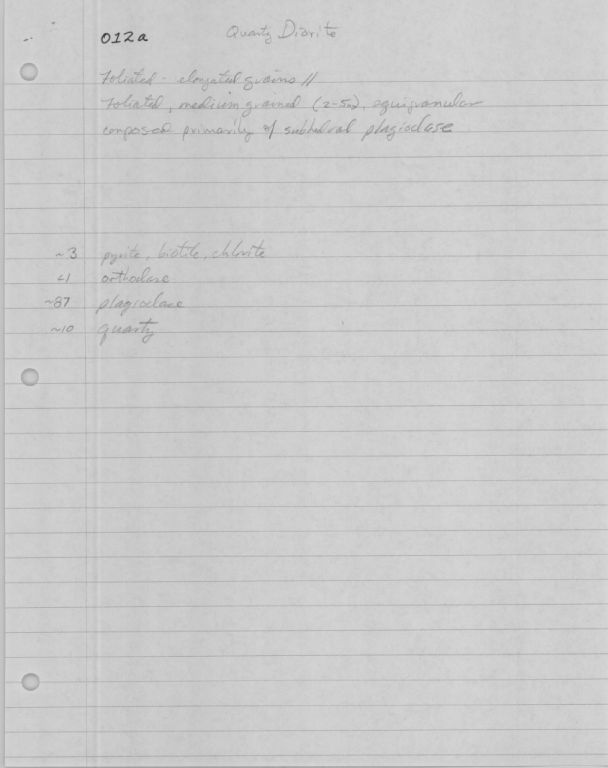 012a Quartz Diorite
Foliated - elongated grains //
Foliated, medium grained (2-5m), equigranular
composed primarily of subhedral plagioclase
~3 pyrite, biotite, chlorite
<1 orthoclase
~87 plagioclase
~10 quartz